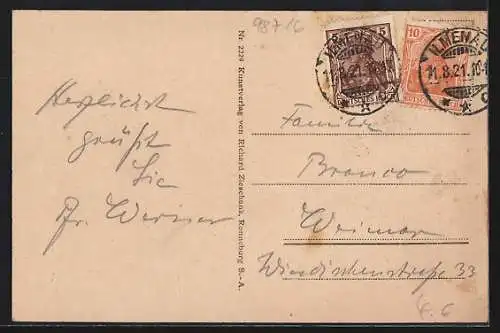 9876
Herzlichst
grüßt
Sie
Fr. Werner
Nr. 2229 Kunstverlag von Richard Zieschank, Ronneburg S.-A.
5
10
ILMENAU
11.8.21.
ILMENAU
11.8.21.
Familie
Branco
Weimar
Windischenstraße 33